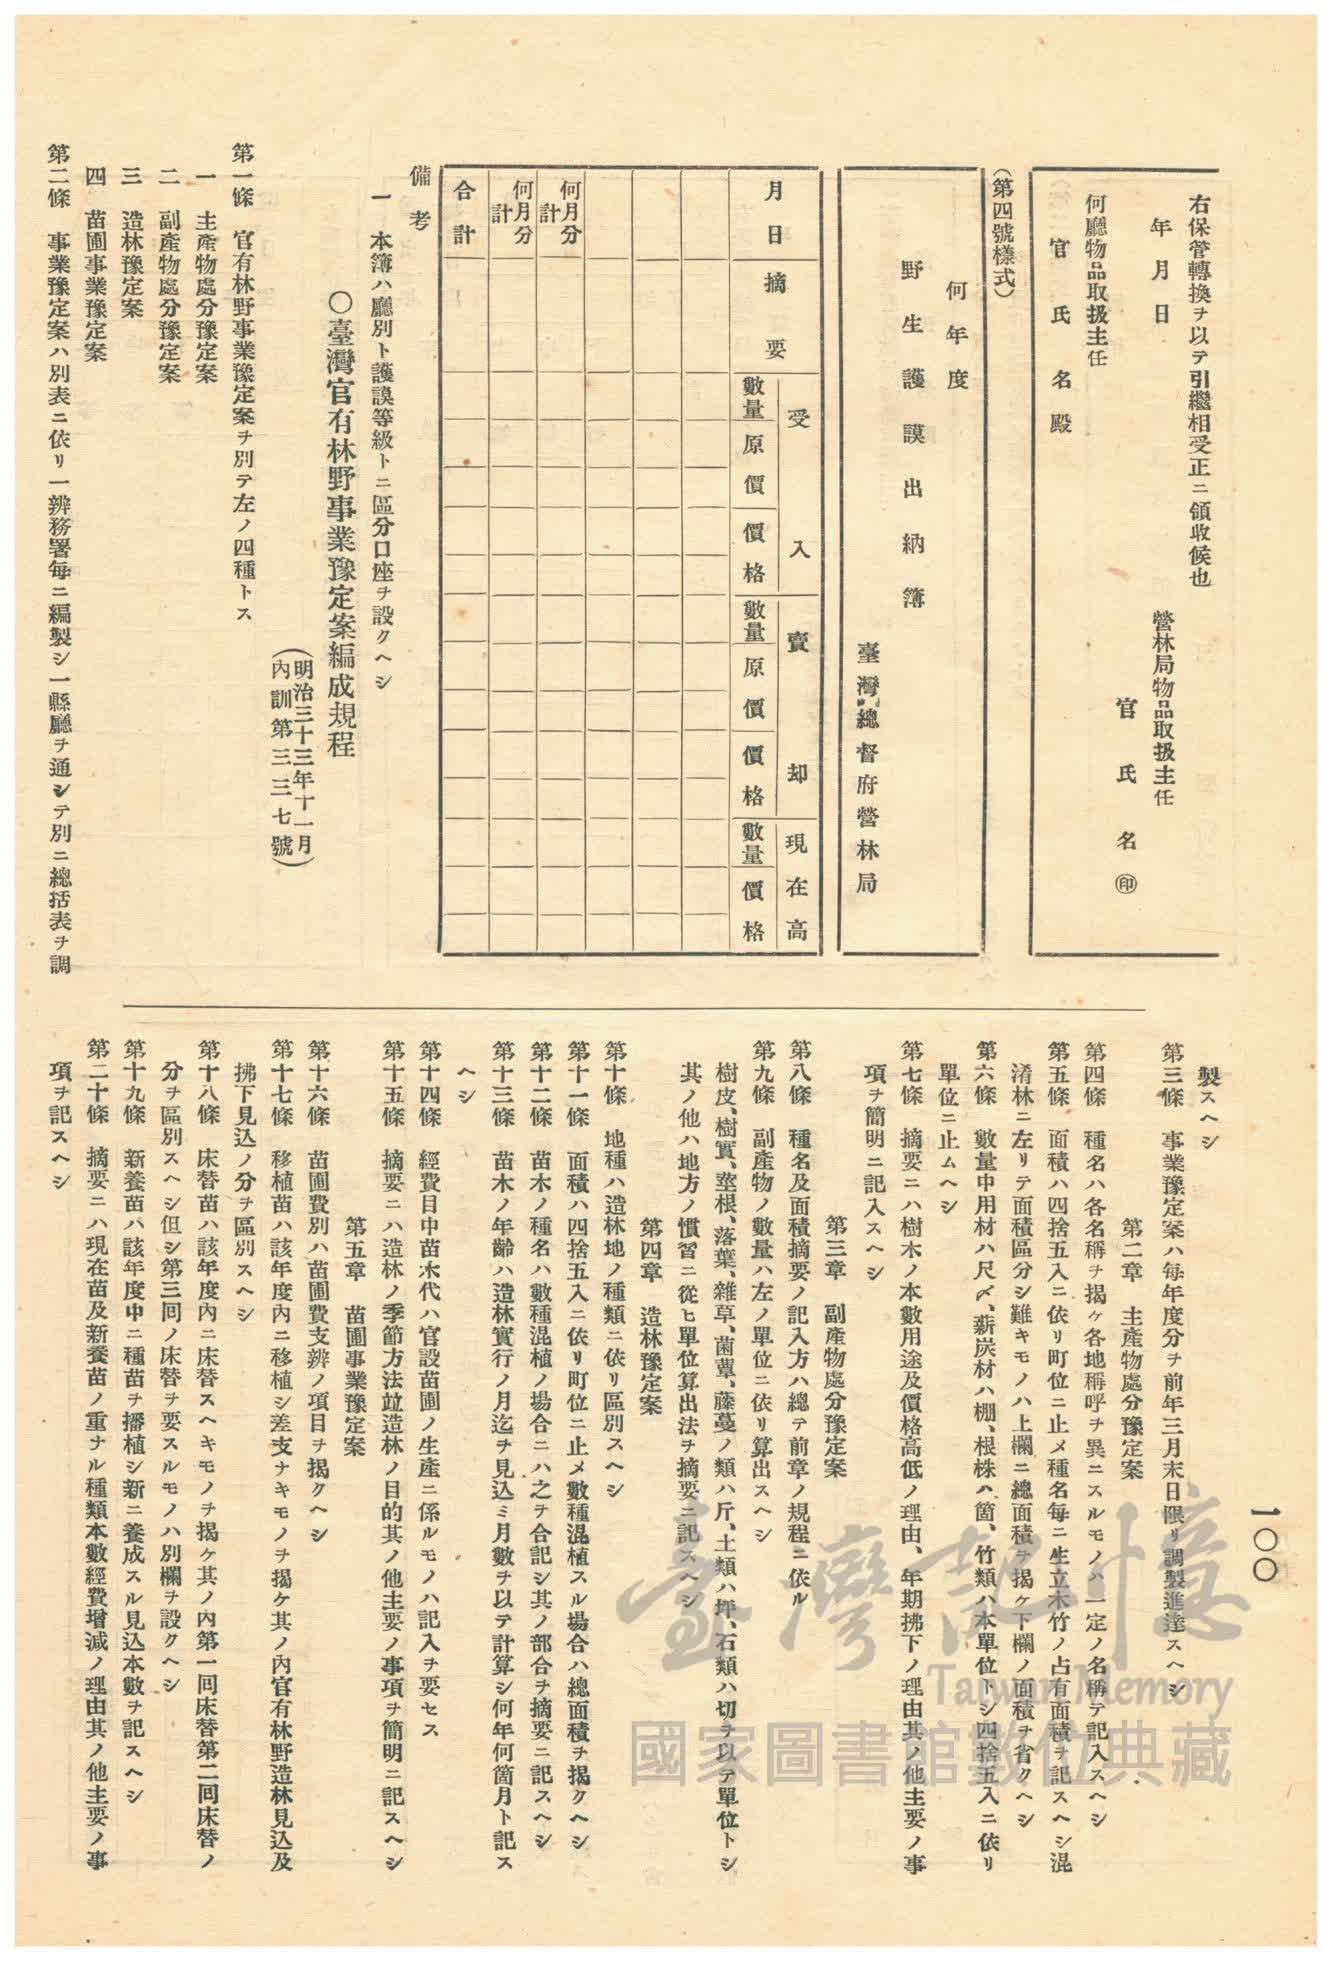 一〇〇
右保管轉換ヲ以テ引繼相受正ニ領收候也
年月日
營林局物品取扱主任
官氏名㊞
何廳物品取扱主任
官氏名殿
(第四號樣式)
何年度
野生護謨出納簿
臺灣總督府營林局
月日 摘要 受入 賣却 現在高
數量 原價 價格 數量 原價 價格 數量 價格
何月分計
何月分計
合計
備考
一 本簿ハ廳別ト護謨等級トニ區分口座ヲ設クヘシ
〇臺灣官有林野事業豫定案編成規程
(明治三十三年十一月
內訓第三三七號)
第一條 官有林野事業豫定案ヲ別テ左ノ四種トス
一 主產物處分豫定案
二 副產物處分豫定案
三 造林豫定案
四 苗圃事業豫定案
第二條 事業豫定案ハ別表ニ依リ一辨務署每ニ編製シ一縣廳ヲ通シテ別ニ總括表ヲ調
製スヘシ
第三條 事業豫定案ハ每年度分ヲ前年三月末日限リ調製進達スヘシ
第二章 主產物處分豫定案
第四條 種名ハ各名稱ヲ揭ケ各地稱呼ヲ異ニスルモノハ一定ノ名稱テ記入スヘシ
第五條 面積ハ四捨五入ニ依リ町位ニ止メ種名每ニ生立木竹ノ占有面積ヲ記スヘシ混
淆林ニ左リテ面積區分シ難キモノハ上欄ニ總面積ヲ揭ケ下欄ノ面積ヲ省クヘシ
第六條 數量中用材ハ尺〆、薪炭材ハ棚、根株ハ箇、竹類ハ本單位トシ四捨五入ニ依リ
單位ニ止ムヘシ
第七條 摘要ニハ樹木ノ本數用途及價格高低ノ理由、年期拂下ノ理由其ノ他主要ノ事
項ヲ簡明ニ記入スヘシ
第三章 副產物處分豫定案
第八條 種名及面積摘要ノ記入方ハ總テ前章ノ規程ニ依ル
第九條 副產物ノ數量ハ左ノ單位ニ依リ算出スヘシ
樹皮、樹實、莖根、落葉、雜草、菌蕈、藤蔓ノ類ハ斤、土類ハ坪、石類ハ切ヲ以テ單位トシ
其ノ他ハ地方ノ慣習ニ從ヒ單位算出法ヲ摘要ニ記スヘシ
第四章 造林豫定案
第十條 地種ハ造林地ノ種類ニ依リ區別スヘシ
第十一條 面積ハ四捨五入ニ依リ町位ニ止メ數種混植スル場合ハ總面積ヲ揭クヘシ
第十二條 苗木ノ種名ハ數種混植ノ場合ニハ之ヲ合記シ其ノ部合ヲ摘要ニ記スヘシ
第十三條 苗木ノ年齡ハ造林實行ノ月迄ヲ見込ミ月數ヲ以テ計算シ何年何箇月ト記ス
ヘシ
第十四條 經費目中苗木代ハ官設苗圃ノ生產ニ係ルモノハ記入ヲ要セス
第十五條 摘要ニハ造林ノ季節方法竝造林ノ目的其ノ他主要ノ事項ヲ簡明ニ記スヘシ
第五章 苗圃事業豫定案
第十六條 苗圃費別ハ苗圃費支辨ノ項目ヲ揭クヘシ
第十七條 移植苗ハ該年度內ニ移植シ差支ナキモノヲ揭ケ其ノ內官有林野造林見込及
拂下見込ノ分ヲ區別スヘシ
第十八條 床替苗ハ該年度內ニ床替スヘキモノヲ揭ケ其ノ內第一回床替第二回床替ノ
分ヲ區別スヘシ但シ第三回ノ床替ヲ要スルモノハ別欄ヲ設クヘシ
第十九條 新養苗ハ該年度中ニ種苗ヲ播植シ新ニ養成スル見込本數ヲ記スヘシ
第二十條 摘要ニハ現在苗及新養苗ノ重ナル種類本數經費增減ノ理由其ノ他主要ノ事
項ヲ記スヘシ
臺灣記憶
Taiwan Memory
國家圖書館數位典藏